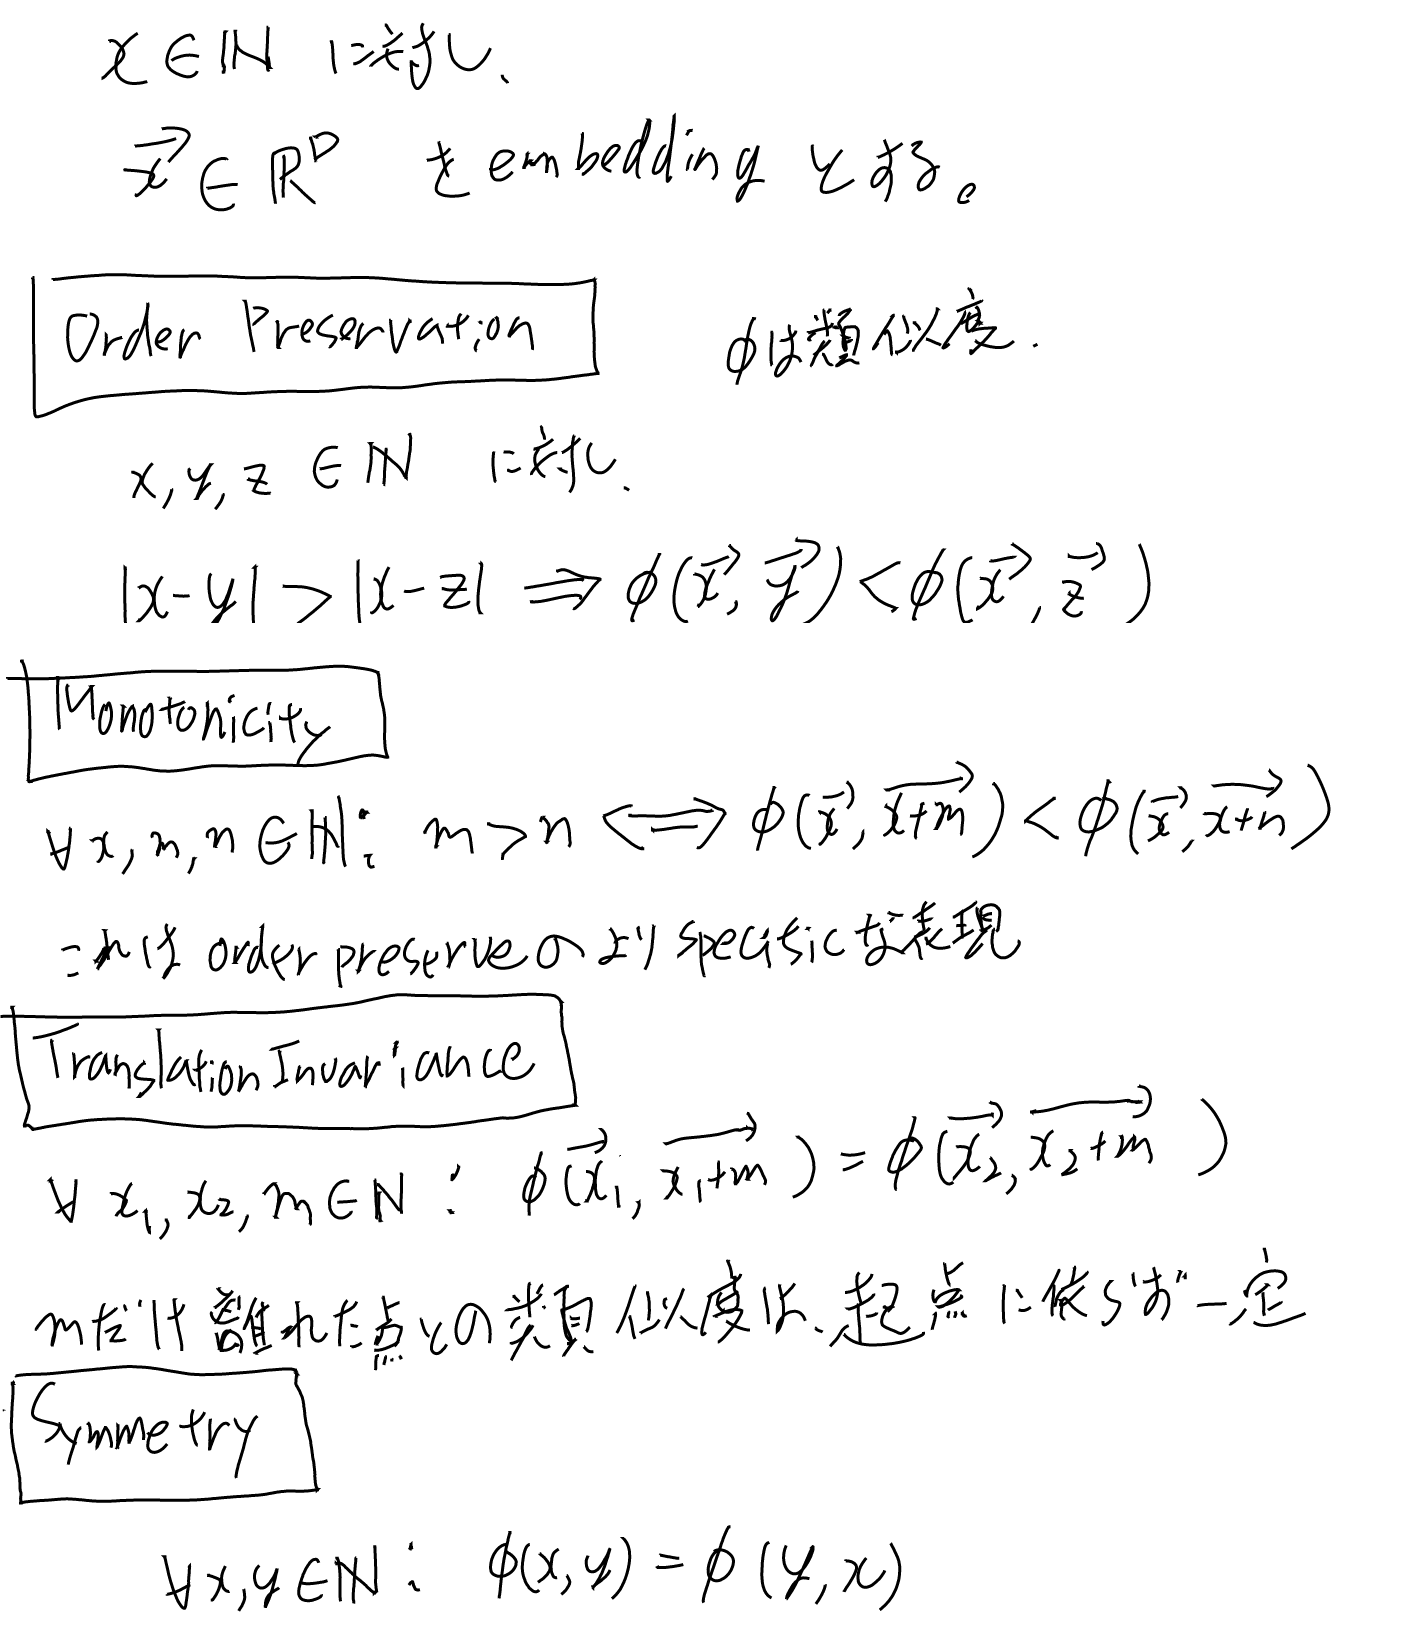 x ∈ ℕ に対し、
x⃗ ∈ ℝᴰ を embedding とする。
Order Preservation
φは類似度.
x, y, z ∈ ℕ に対し.
|x-y| > |x-z| ⇒ φ(x⃗, y⃗) < φ(x⃗, z⃗)
Monotonicity
∀x, m, n ∈ ℕ: m > n ⇔ φ(x⃗, \overrightarrow{x+m}) < φ(x⃗, \overrightarrow{x+n})
これは order preserve のより specific な表現
Translation Invariance
∀ x₁, x₂, m ∈ ℕ : φ(x⃗₁, \overrightarrow{x₁+m}) = φ(x⃗₂, \overrightarrow{x₂+m})
mだけ離れた点との類似度は、起点に依らず一定
Symmetry
∀x, y ∈ ℕ : φ(x, y) = φ(y, x)